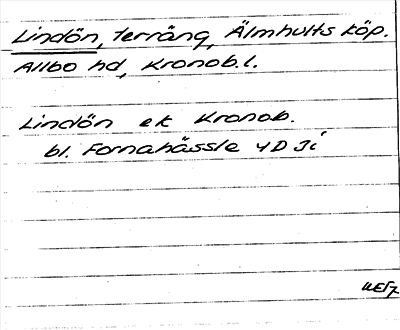 Lindön, terräng, Älmhults köp.
Allbo hd, Kronob.l.
Lindön ek Kronob.
bl. Fornahässle 4D 3i